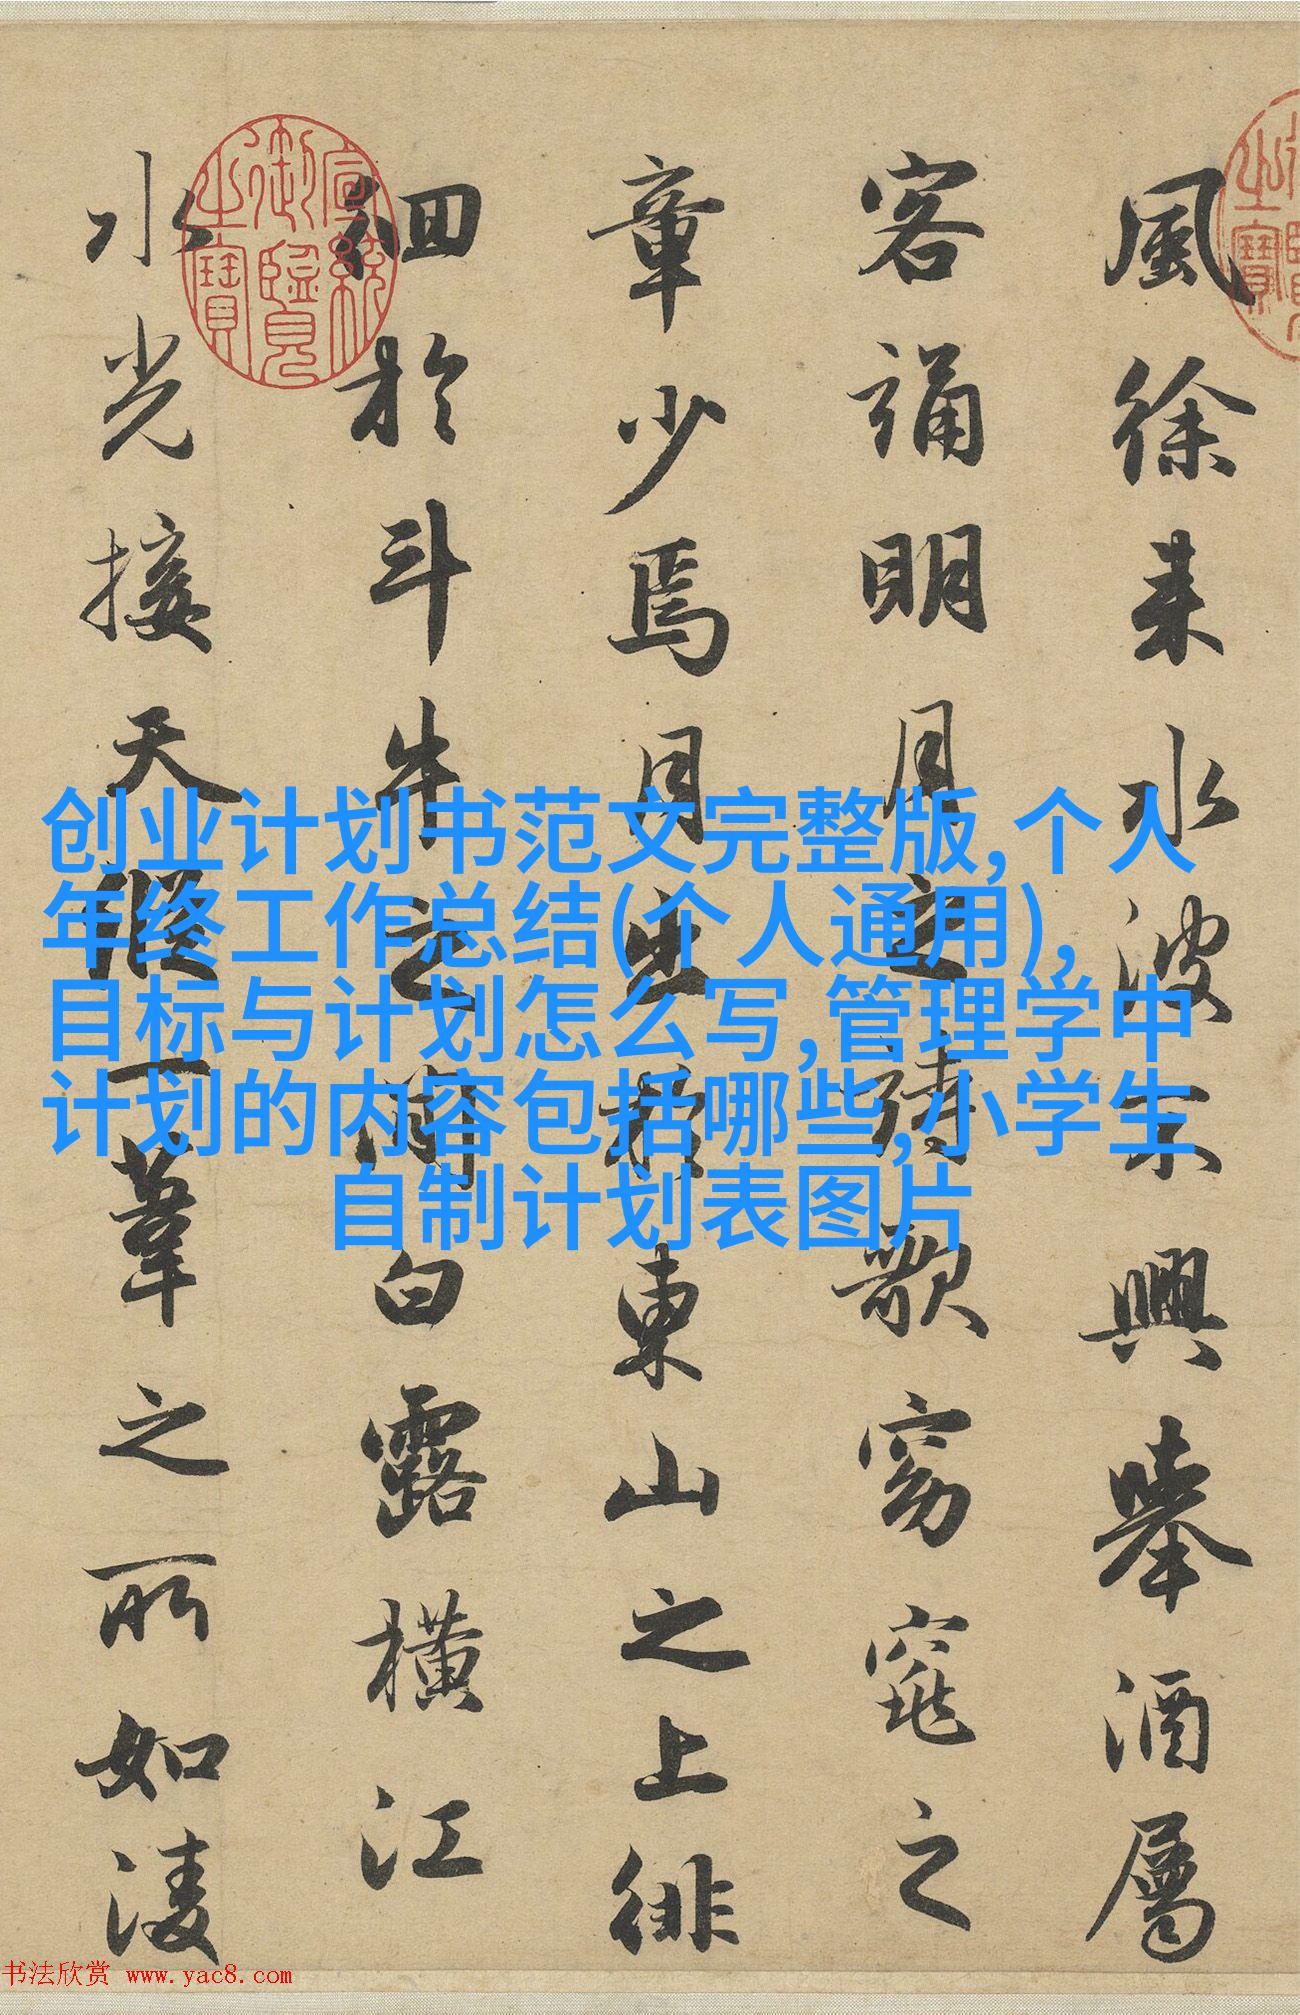 風徐来水波不興舉酒屬
客誦明月之詩歌窈窕之
章少焉月出於東山之上徘
徊於斗牛之間白露橫江
水光接天縱一葦之所如淩
宣統御覽之寶
创业计划书范文完整版,个人
年终工作总结(个人通用),
目标与计划怎么写,管理学中
计划的内容包括哪些,小学生
自制计划表图片
书法欣赏 www.yac8.com